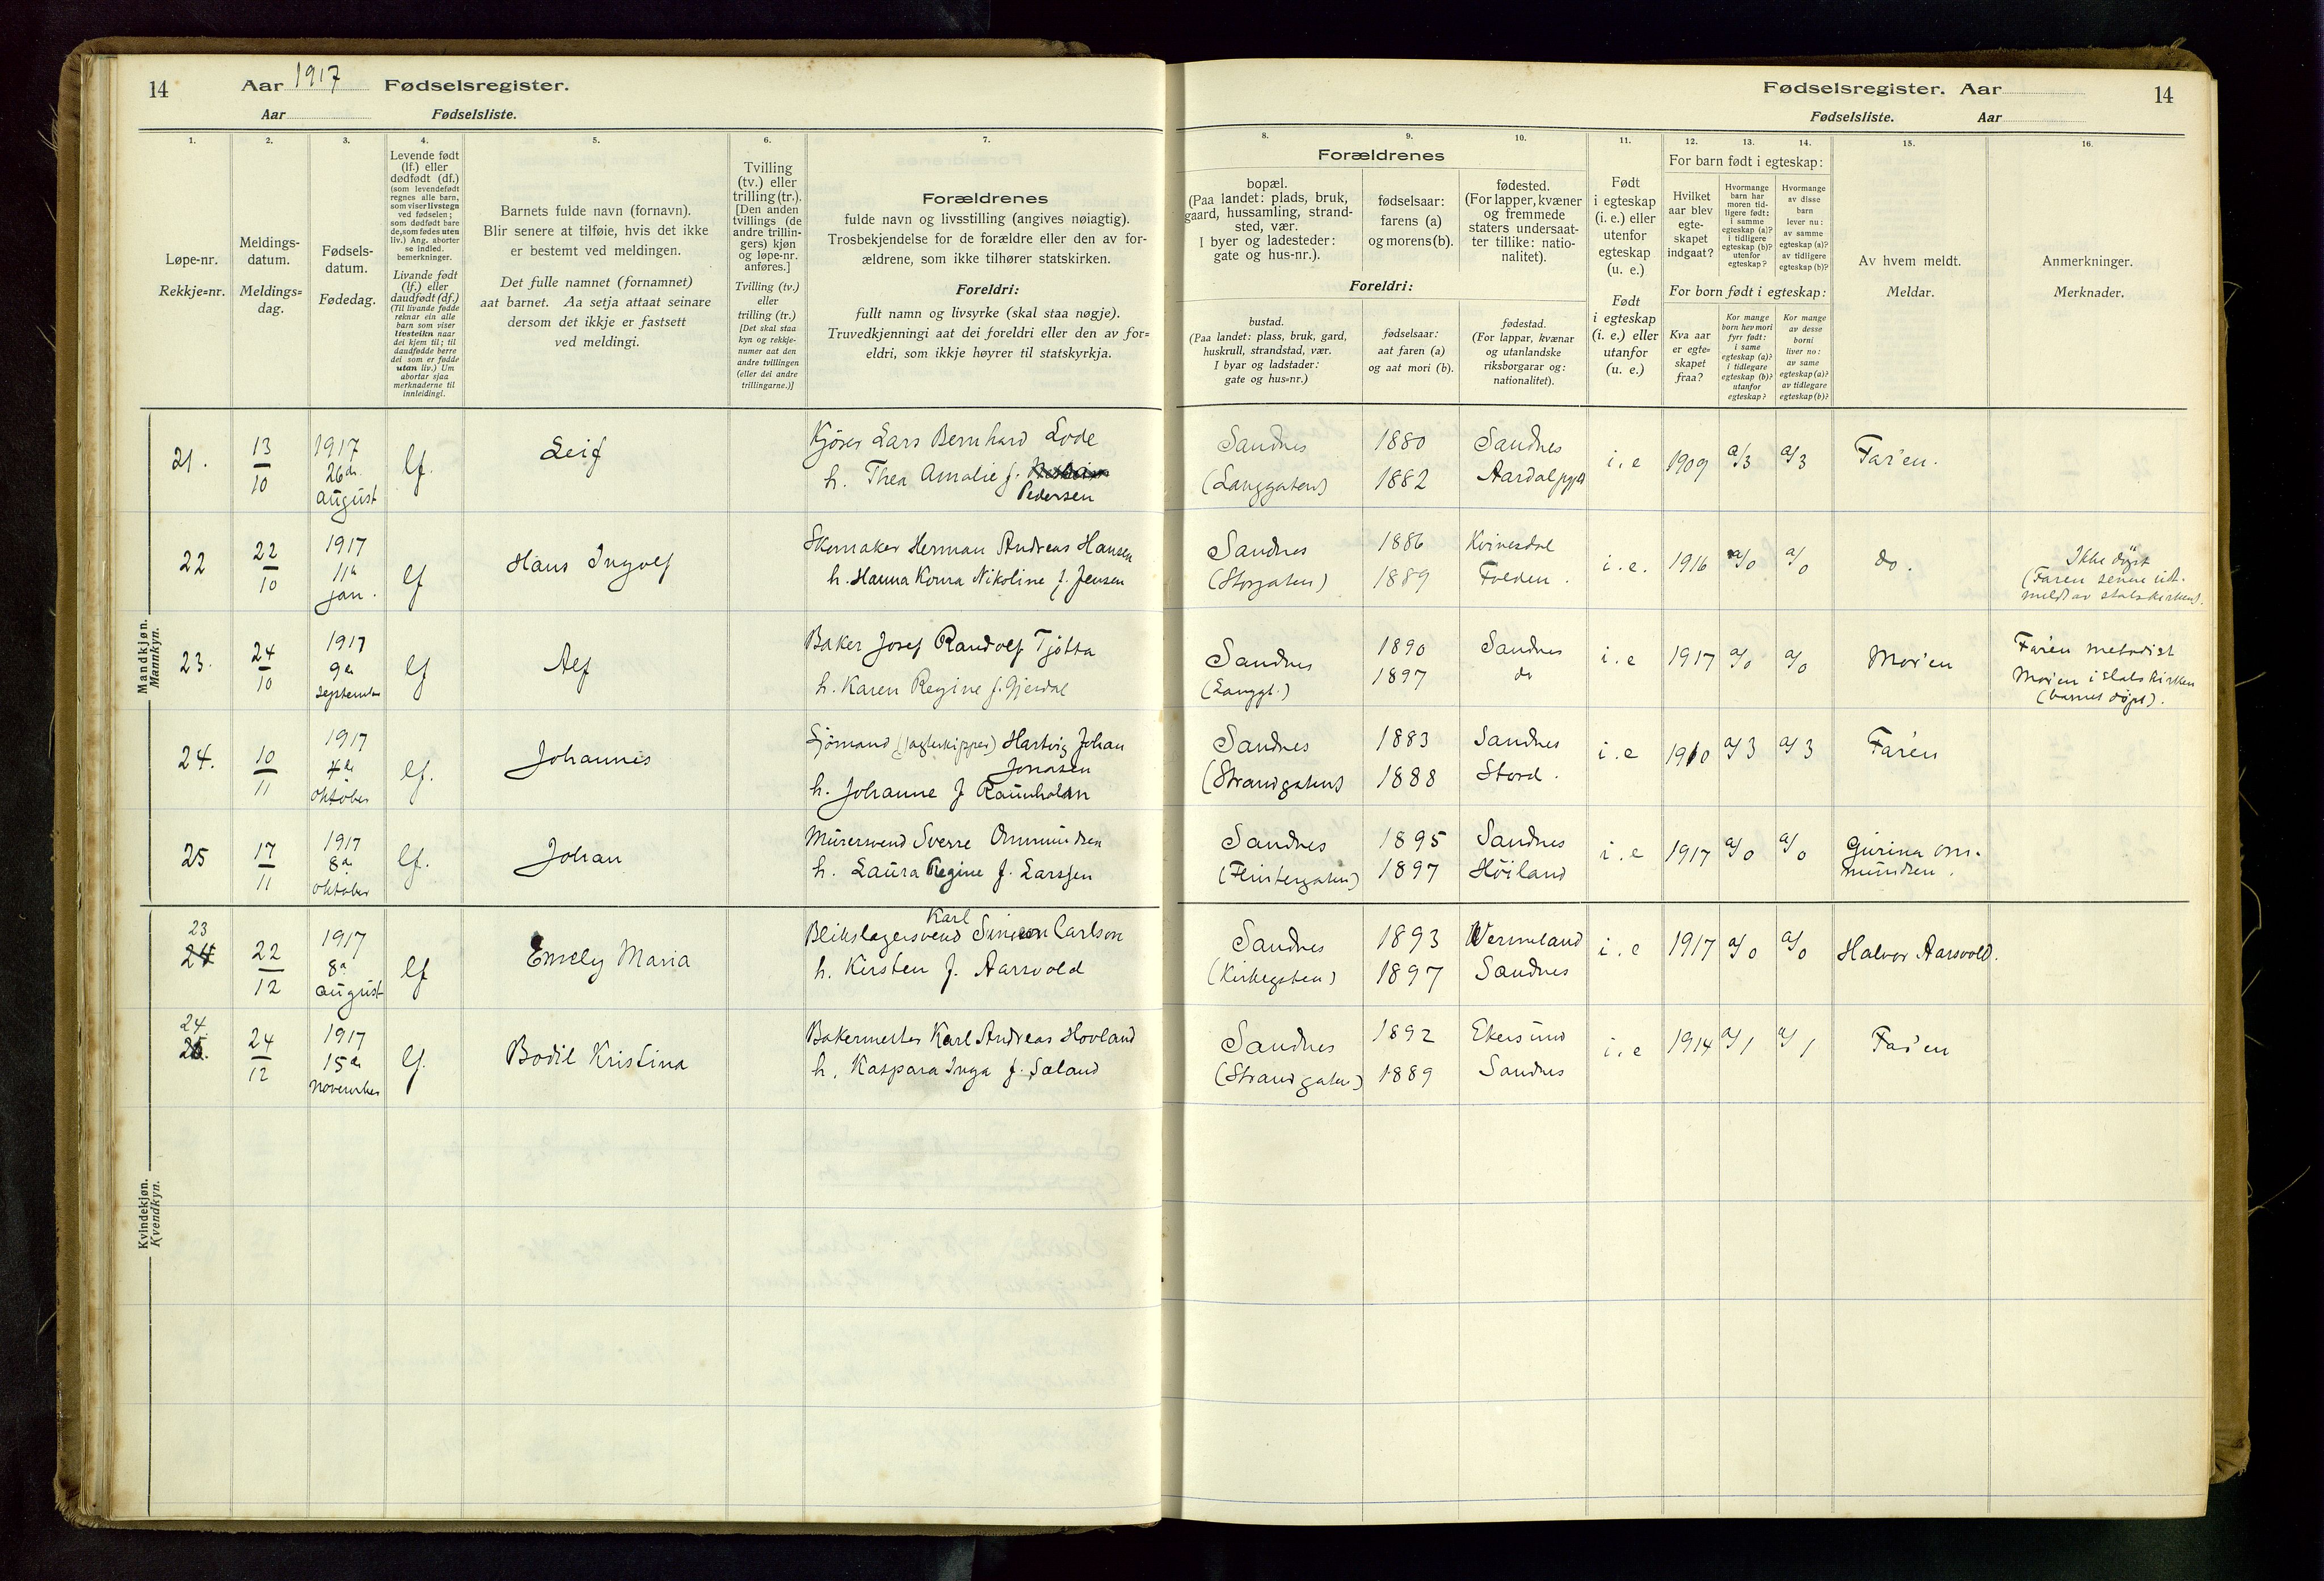 14 Aar 1917 Fødselsregister.
Aar Fødselsliste.
Fødselsregister. Aar 14
Fødselsliste. Aar
1. 2. 3. 4. 5. 6. 7. 8. 9. 10. 11. 12. 13. 14. 15. 16.
Løpe-nr.
Rekkje=nr.
Meldings-
datum.
Meldings=
dag.
Fødsels-
datum.
Fødedag.
Levende født
(lf.) eller
dødfødt (df.)
(som levendefødt
regnes alle barn,
som viser livstegn
ved fødselen;
som dødfødt bare
de, som fødes uten
liv.) Ang. aborter
se indled.
bemerkninger.
Livande født
(lf.) eller
daudfødt (df.)
(Til livande fødde
reknar ein alle
barn som viser
livsteikn naar
dei kjem til; til
daudfødde berre
dei som er fødde
utan liv.) Um
abortar sjaa
merknaderne til
innleidingi.
Barnets fulde navn (fornavn).
Blir senere at tilføie, hvis det ikke
er bestemt ved meldingen.
Det fulle namnet (fornamnet)
aat barnet. Aa setja attaat seinare
dersom det ikkje er fastsett
ved meldingi.
Tvilling
(tv.) eller
trilling (tr.).
[Den anden
tvillings (de
andre trillin-
gers) kjøn
og løpe-nr.
anføres.]
Tvilling (tv.)
eller
trilling (tr.)
[Det skal staa
kyn og rekkje-
numer aat den
andre tvillingen
(eller dei andre
trillingarne.)]
Forældrenes
fulde navn og livsstilling (angives nøiagtig).
Trosbekjendelse for de forældre eller den av for-
ældrene, som ikke tilhører statskirken.
Foreldri:
fullt namn og livsyrke (skal staa nøgje).
Truvedkjenningi aat dei foreldri eller den av for=
eldri, som ikkje høyrer til statskyrkja.
Forældrenes
bopæl.
(Paa landet: plads, bruk,
gaard, hussamling, strand-
sted, vær.
I byer og ladesteder:
gate og hus-nr.).
fødselsaar:
farens (a)
og morens (b).
fødested.
(For lapper, kvæner
og fremmede
staters undersaat-
ter tillike: natio-
nalitet).
Foreldri:
bustad.
(Paa landet: plass, bruk, gard,
huskrull, strandstad, vær.
I byar og ladstader:
gate og hus=nr.)
fødselsaar:
aat faren (a)
og aat mori (b).
fødestad.
(For lappar, kvænar
og utanlandske
riksborgarar og:
nationalitet).
Født
i egteskap
(i. e.) eller
utenfor
egteskap
(u. e.)
Født
i egteskap
(i. e.) eller
utanfor
(u. e.)
For barn født i egteskap:
Hvilket
aar blev
egte-
skapet
indgaat?
Hvormange
barn har
moren tid-
ligere født:
i samme
egteskap (a)?
i tidligere
egteskap (b)?
utenfor
egteskap?
Hvormange
av disse
barn
lever nu:
av samme
egteskap (a)?
av tidligere
egteskap (b)?
For born født i egteskap:
Kva aar
er egte=
skapet
fraa?
Kor mange
born hev mori
fyrr født:
i same
egteskap (a)?
i tidlegare
egteskap (b)?
utanfor
egteskap?
Kor mange
av desse
borni
liver no:
av same
egteskap (a)?
av tidlegare
egteskap (b)?
Av hvem meldt.
Meldar.
Anmerkninger.
Merknader.
Mandkjøn.
Mannkyn.
21. 13/10 1917 26de august lf. Leif Kjører Lars Bernhard Lode
h. Thea Amalie f. Pedersen
Sandnes (Langgaten) 1880 1882 Sandnes Aardal i. e 1909 a/3 a/3 Far'en.
22 22/10 1917 11te jan. lf Hans Ingolf Skomaker Herman Andreas Hansen
h. Hanna Nikoline f. Jensen
Sandnes (Storgaten) 1886 1889 Kvinesdal Folden. i. e. 1916 a/0 a/0 do. Ikke døpt
(Faren senere ut-
meldt av statskirken).
23. 24/10 1917 9de september lf Alf Baker Josef Randolf Tjøtta
h. Karen Regine f. Gjesdal
Sandnes (Langgt.) 1890 1897 Sandnes do i. e 1917 a/0 a/0 Mor'en Far'en metodist
Mor'en i statskirken
(barnet døpt).
24. 10/11 1917 4de oktober lf. Johannes Sjømand (jagteskipper) Hartvig Johan
Jonasen
h. Johanne f Raunholm
Sandnes (Strandgaten) 1883 1888 Sandnes Stord. i. e 1910 a/3 a/3 Far'en
25 17/11 1917 8de oktober lf. Johan Murersvend Sverre Ommundsen
h. Laura Regine f. Larssen
Sandnes 1895 1897 Sandnes Høiland i. e 1917 a/0 a/0 Gurina Om-
mundsen.
Kvindekjøn.
Kvendkyn.
23 24 22/12 1917 8de august lf Emely Maria Blikslagersvend Karl Simeon Carlson
h. Kirsten f. Aarsvold
Sandnes (Kirkegaten) 1893 1897 Wermeland Sandnes i. e 1917 a/0 a/0 Halvor Aarsvold.
24. 25. 24/12 1917 15de november lf. Bodil Kristina Bakermester Karl Andreas Hovland
h. Kaspara Inga f. Sæland
Sandnes (Strandgaten) 1892 1889 Ekersund Sandnes i. e 1914 a/1 a/1 Far'en